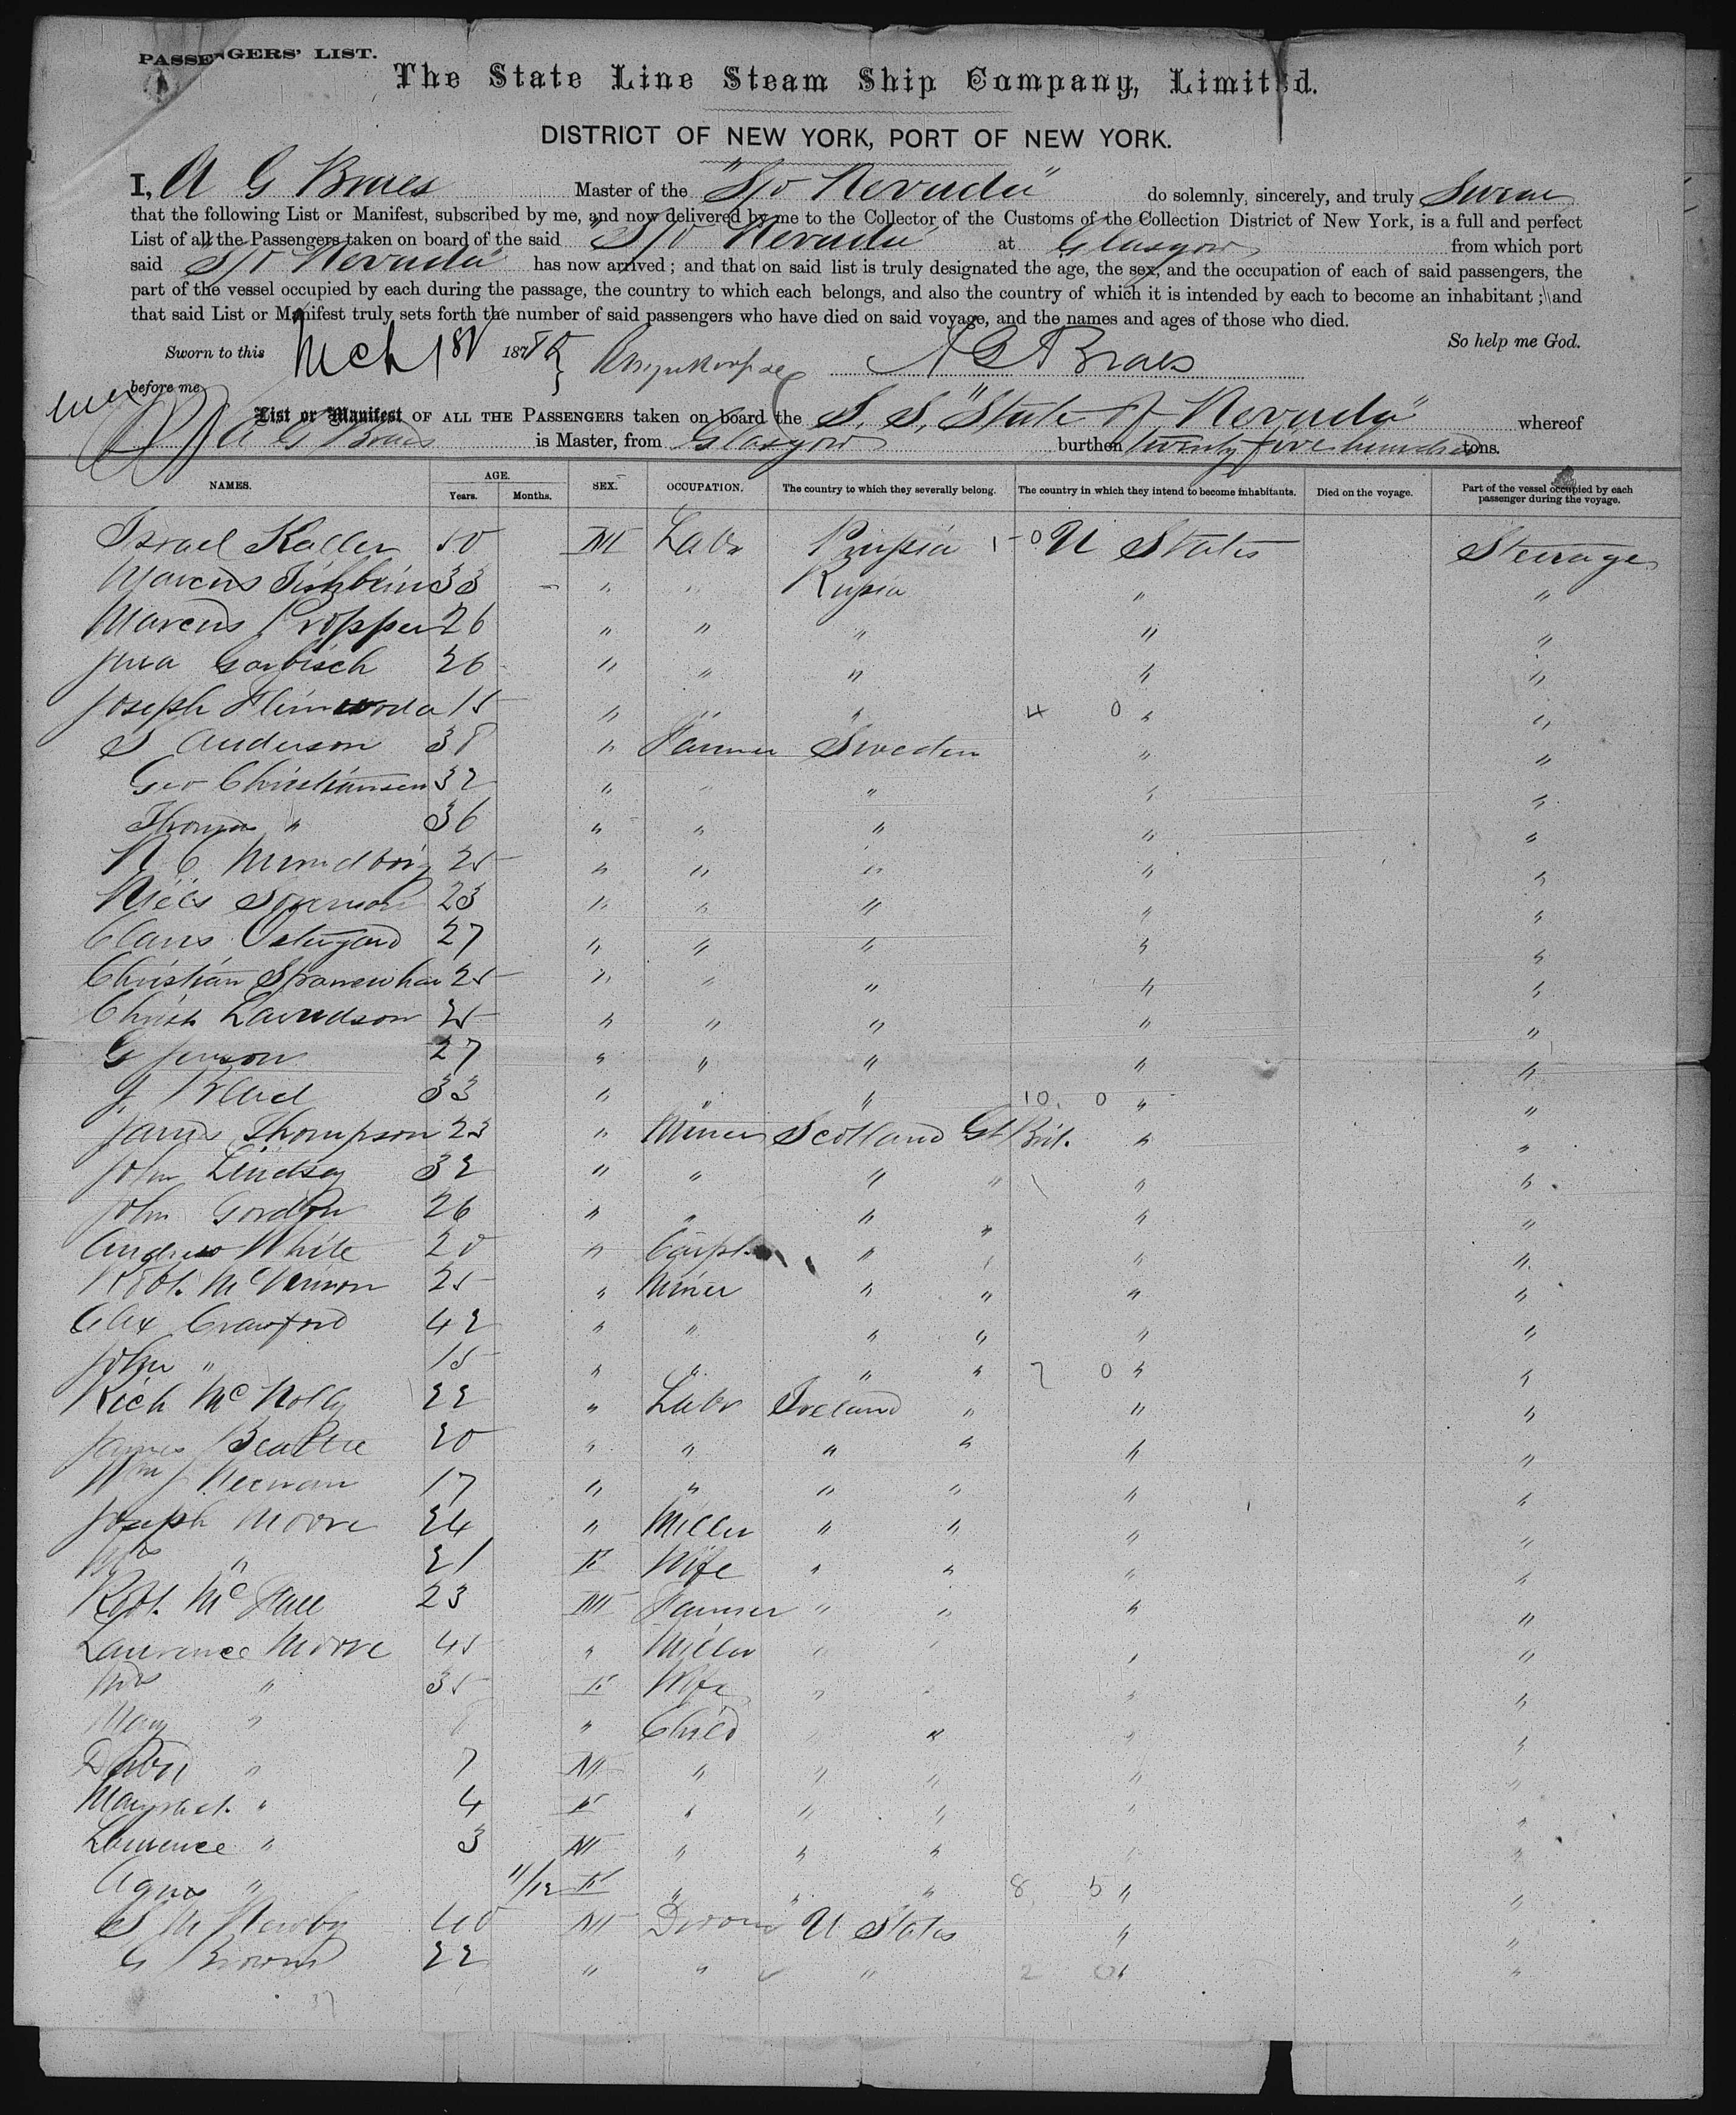 PASSENGERS' LIST.
The State Line Steam Ship Company, Limited.
DISTRICT OF NEW YORK, PORT OF NEW YORK.
I, A G Braes Master of the "S/o Nevada" do solemnly, sincerely, and truly Swear
that the following List or Manifest, subscribed by me, and now delivered by me to the Collector of the Customs of the Collection District of New York, is a full and perfect
List of all the Passengers taken on board of the said "S/o Nevada" at Glasgow from which port
said S/o Nevada has now arrived; and that on said list is truly designated the age, the sex, and the occupation of each of said passengers, the
part of the vessel occupied by each during the passage, the country to which each belongs, and also the country of which it is intended by each to become an inhabitant; and
that said List or Manifest truly sets forth the number of said passengers who have died on said voyage, and the names and ages of those who died.
So help me God.
Sworn to this Mch 187 A G Braes
before me
List or Manifest OF ALL THE PASSENGERS taken on board the S. S. "State of Nevada" whereof
A G Braes is Master, from Glasgow burthen twenty five hundred tons.
NAMES. AGE. Years. Months. SEX. OCCUPATION. The country to which they severally belong. The country in which they intend to become inhabitants. Died on the voyage. Part of the vessel occupied by each passenger during the voyage.
Israel Kaller 50 M Labr 1 0 U States Steerage
Marcus Fishbein 33 " " Rupia " "
Marcus Propper 26 " " " " "
26 " " " " "
Joseph 15 " " " 4 0 " "
S Anderson 38 " Farmer Sweden " "
Geo Christiansen 32 " " " " "
Thomas " 36 " " " " "
N C 25 " " " " "
Niels Sorenson 23 " " " " "
Claus 27 " " " " "
Christian 25 " " " " "
Christ Lauridson 25 " " " " "
G Jenson 27 " " " " "
J. 33 " " " 10. 0 " "
James Thompson 23 " Miner Scotland Gt Brit. " "
John Lindsay 32 " " " " " "
John Gordon 26 " " " " " "
Andrew White 20 " Carpt. " " " "
Robt. McKinnon 25 " Miner " " " "
Alex Crawford 42 " " " " " "
John " 15 " " " " 7 0 " "
Rich McNolly 22 " Labr Ireland " " "
James Beattie 20 " " " " " "
Wm J 17 " " " " " "
Joseph Moore 24 " Miller " " " "
Mrs " 21 F Wife " " " "
Robt. McFall 23 M Farmer " " " "
Laurence Moore 45 " Miller " " " "
Mrs " 35 F Wife " " " "
Mary " 8 " Child " " " "
" 7 M " " " " "
Margaret. " 4 F " " " " "
Laurence " 3 M " " " " "
Agnes " 11/12 F " " " 8 5 " "
S M Newby 40 M U States " "
G Brown 22 " " " 2 0 " "
37